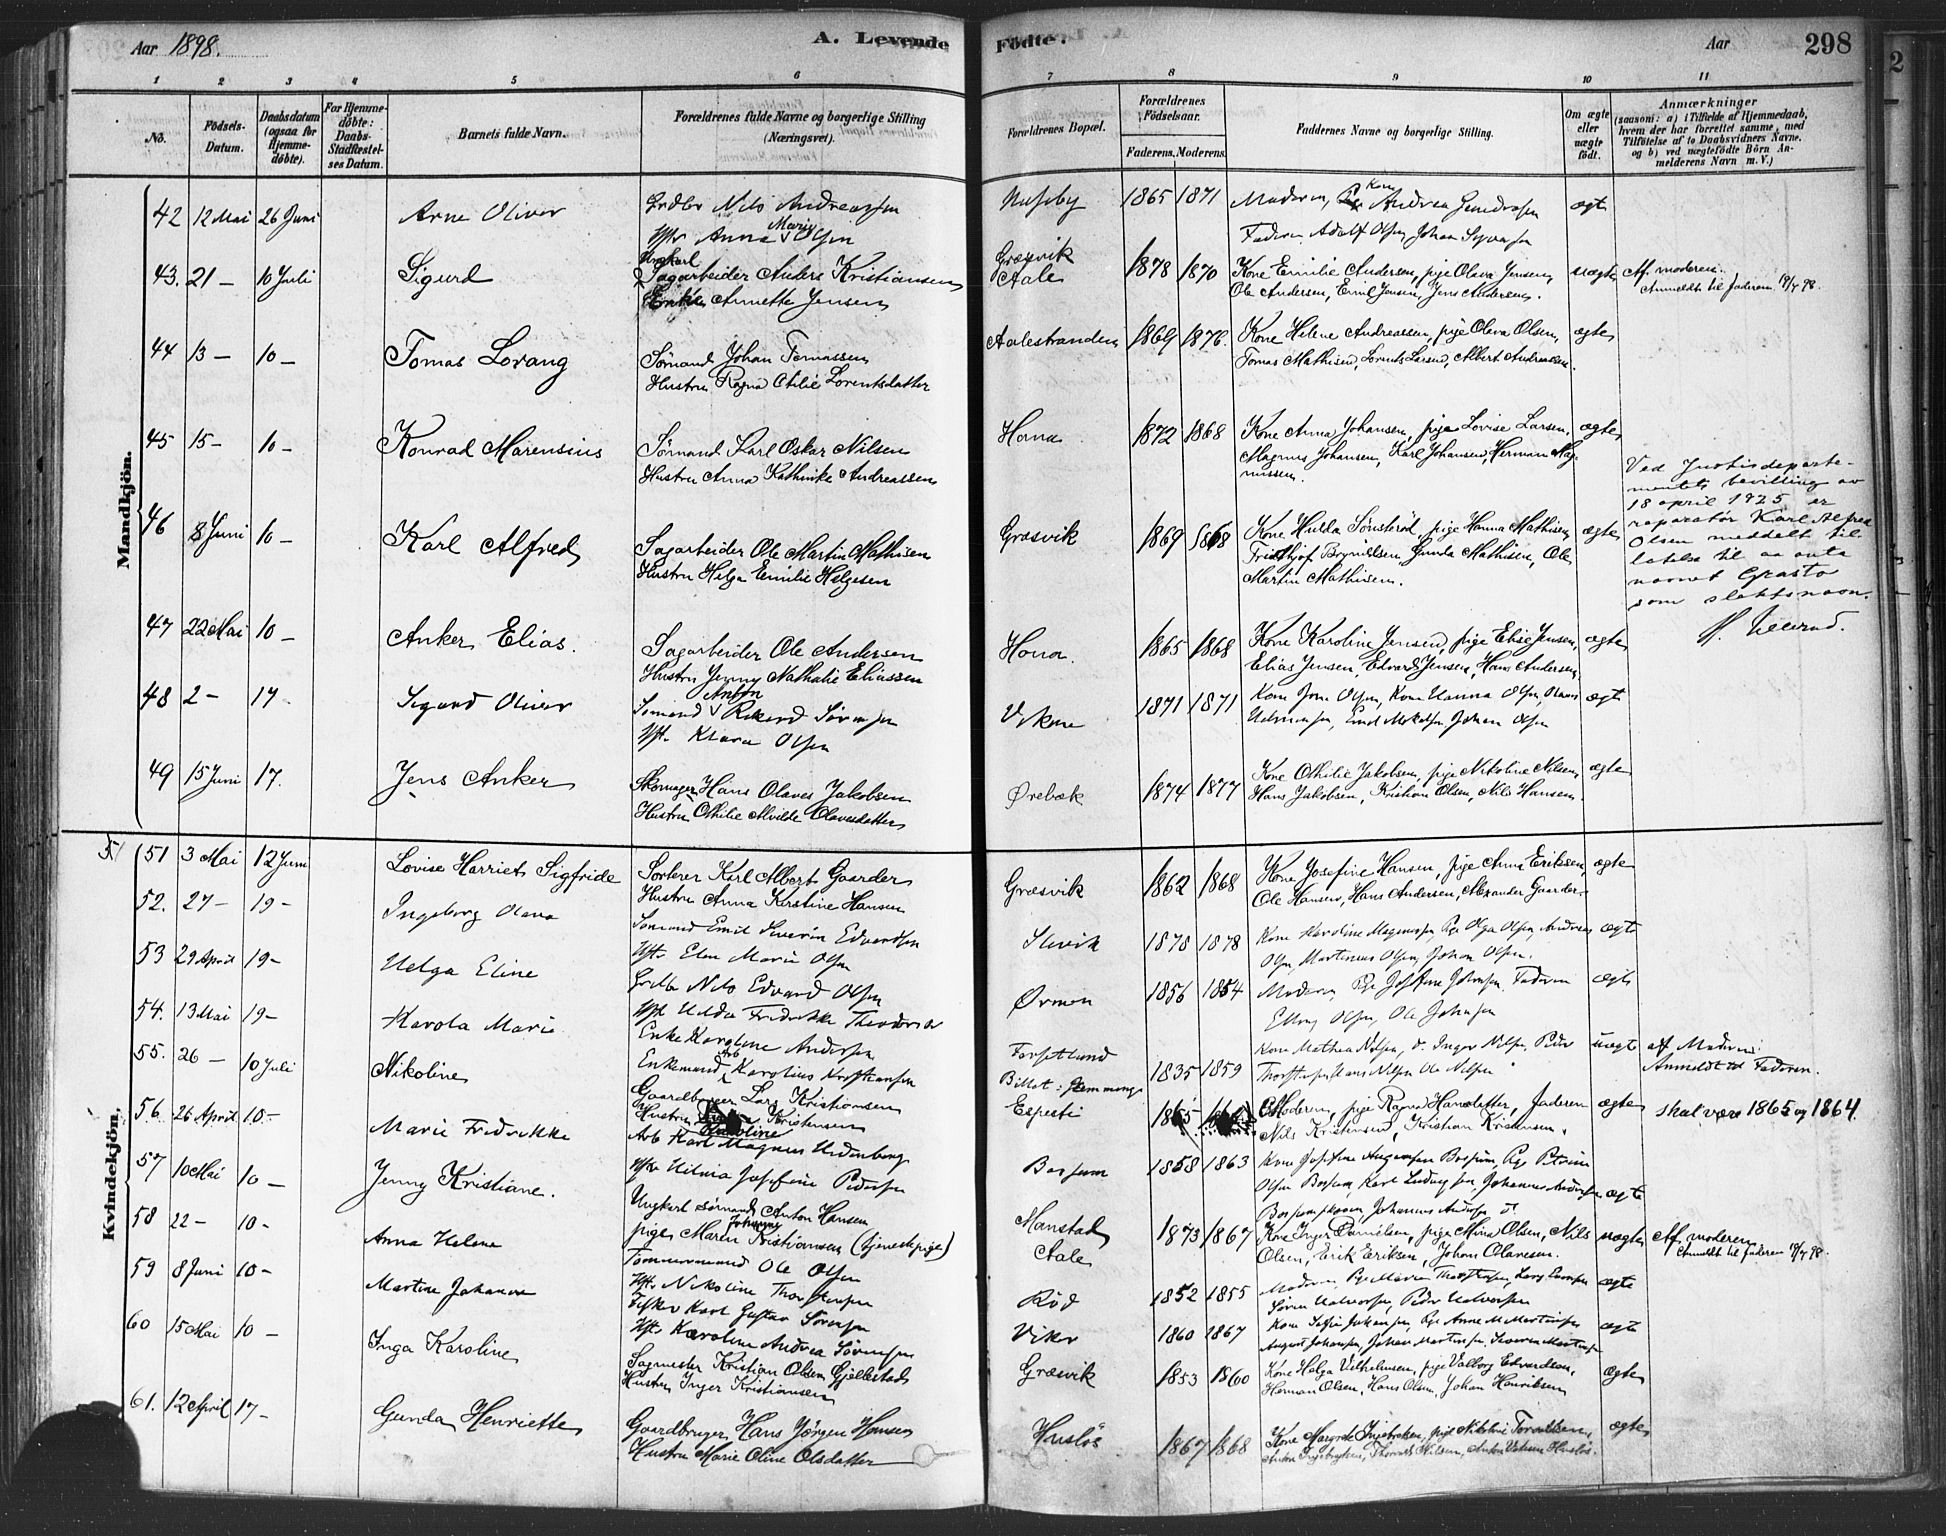 Aar 1898.
A. Levende
Fødte.
Aar
298
1 2 3 4 5 6 7 8 9 10 11
No.
Fødsels-
Datum.
Daabsdatum
(ogsaa for
Hjemme-
døbte).
For Hjemme-
døbte:
Daabs-
Stadfæstel-
ses Datum.
Barnets fulde Navn.
Forældrenes fulde Navne og borgerlige Stilling
(Næringsvei).
Forældrenes Bopæl.
Forældrenes
Fødselsaar.
Faderens. Moderens.
Faddernes Navne og borgerlige Stilling.
Om ægte
eller
uægte
født.
Anmærkninger
(saasom: a) i Tilfælde af Hjemmedaab,
hvem der har forrettet samme, med
Tilføielse af to Daabsvidners Navne.
og b) ved uægtefødte Børn An-
melderens Navn m. V.)
Mandkjøn.
42 12 Mai 26 Juni Arne Oliver
Nils Andreassen
Anna Marie Olsen
Huseby 1865 1871
Moderen, Kone Andrea
Faderen, Adolf Olsen, Johan
ægt
43. 21 — 10 Juli Sigurd
Ungkarl
Sagarbeider Anders Kristiansen
Enke Annette Jensen
Græsvik
Aale 1878 1870
Kone Emilie Andersen, pige Olava Jensen,
Ole Andersen, Emil Jensen, Jens Andersen.
uægte
Af moderen.
Anmeldt til faderen 18/7 98.
44 13 — 10 — Tomas Lorang
Sømand Johan Tomassen
Hustru Ragna Otilie Lorentsdatter
Aalestranden 1869 1876.
Kone Helene Andreassen, pige Olava Olsen,
Tomas Mathisen, Lorents Larsen, Albert Andreassen.
ægte
45 15 — 10 — Konrad Marensius
Sømand Karl Oskar Nilsen
Hustru Anna Kathinke Andreassen
Hona 1872 1868
Kone Anna Johansen, pige Lovise Larsen,
Magnus Johansen, Karl Johansen, Herman Mag-
nussen.
ægte
46 8 Juni 10 — Karl Alfred
Sagarbeider Ole Martin Mathisen
Hustru Helga Emilie Helgesen
Græsvik 1869 1868
Kone Hulda Sønsterød, pige Hanna Mathisen,
Fridthjof Brynildsen, Gunda Mathisen, Ole
Martin Mathisen.
ægte
Ved Justisdeparte-
mentets bevilling av
18 april 1925 er
reparatør Karl Alfred
Olsen meddelt til-
latelse til aa anta
navnet Grastø
som slektsnavn.
47 22 Mai 10 — Anker Elias.
Sagarbeider Ole Andersen
Hustru Jenny Nathalie Eliassen
Hona. 1865 1868
Kone Karoline Jensen, pige Elise Jensen,
Elias Jensen, Edvard Jensen, Hans Andersen
ægte
48 2 — 17 Sigurd Oliver
Anton
Sømand Rikard Sørensen
Hst. Klara Olsen
Vikene 1871 1871
Kone Jenn Olsen, Kone Hanna Olsen,
Johan Olsen
ægt
49 15 Juni 17. Jens Anker
Skomager Hans Olaves Jakobsen
Hustru Othilie Alvilde Olavesdatter
Ørebæk 1874 1877
Kone Othilie Jakobsen, pige Nikoline Nilsen,
Hans Jakobsen, Kristian Olsen, Nils Hansen.
ægte
Kvindekjøn.
51 51 3 Mai 12 Juni Lovise Harriet Sigfride
Sorterer Karl Albert Gaarder
Hustru Anna Kirstine Hansen
Græsvik 1862 1868
Kone Josefine Hansen, pige Anna Eriksen,
Ole Hansen, Hans Andersen, Alexander Gaarder.
ægte
52. 27 — 19 — Ingeborg Olava
Sømand Emil Severin Edvardsen
Hst. Elen Marie Olsen
Slevik 1878 1878
Kone Karoline Magnussen Pige Olga Olsen, Andreas
Olsen, Martinius Olsen, Johan Olsen.
ægte
53 29 April 19 — Helga Eline
Nils Edvard Olsen
Hst. Hilda Fredrikke
Ørmen 1856 1854
Moderen, Pige Johansen Faderen
Olsen, Ole Johnsen
ægte
54. 13 Mai 19 — Karola Marie
Enke Karoline Andersen
Enkemand Arb. Karolius Kristiansen
1835 1859
Kone Mathea Nilsen, Inger Nilsen, Peder
Hans Nilsen Ole Nilsen
uægte
af Moderen.
Anmeldt til Faderen.
55. 26 — 10 Juli Nikoline
Gaardbruger Lars Kristiansen
Hustru Karoline Kristensen
Espesti
Moderen, pige Ragna Hansdatter, Faderen
Nils Kristensen, Kristian Kristensen.
ægte
skal være 1865 og 1864.
56. 26 April 10 — Marie Fredrikke
Arb Karl Magnus
Hst. Hilma Josefine Pedersen
1858 1863
Kone Josefine
Olsen Johannes Andersen
Johannes Andersen
ægte
57 10 Mai 10 — Jenny Kristiane.
Ungkarl sømand Anton Hansen
pige Maren Johanne Kristiansen (tjenestepige)
Manstad
Aale 1873 1867
Kone Inger Danielsen, pige Mina Olsen, Nils
Olsen, Erik Eriksen, Johan Olavesen.
uægte
Af moderen
Anmeldt til faderen 18/7 98.
58 22 — 10 — Anna Helene
Tømmermand Ole Olsen
Hst. Nikoline Thorstensen
Rød 1852 1855
Moderen, Pige Maren
ægte
59 8 Juni 10 — Martine Johanne
Fisker Karl Gustav Sørensen
Hst. Karoline Andrea Sørensen
Viker 1860 1867
Kone Sofie Johansen, Pige Anne M Martinsen
August Johansen, Johan Martinsen
ægte
60 15 Mai 10 — Inga Karoline
Sagmester Kristian Olsen Gjellestad
Hustru Inger Kristiansen
Græsvik 1853 1860
Kone Helga Vilhelmsen, pige Valborg Edvardsen,
Herman Olsen, Hans Olsen, Johan Henriksen
ægte
61. 12 April 17 — Gunda Henriette
Gaardbruger Hans Jørgen Hansen
Hustru Marie Oline Olsdatter
Husløs 1867 1868
Kone Margrete Ingebretsen, pige Nikoline Torvaldsen,
Anton Ingebretsen, Thorvald Nilsen, Anton Husløs.
ægte